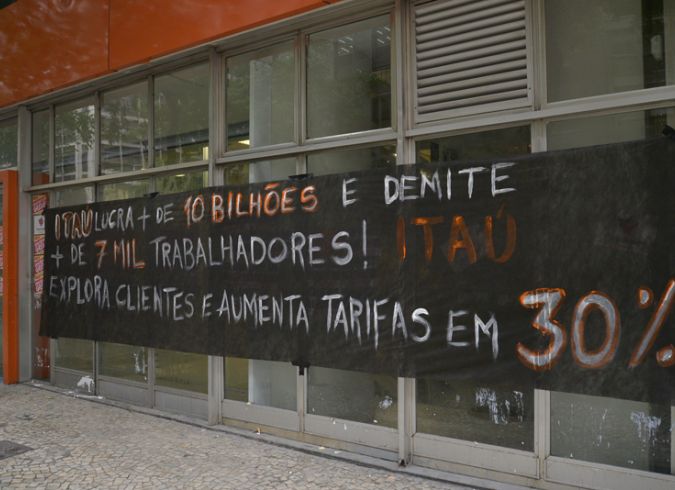 ITAÚ LUCRA + DE 10 BILHÕES E DEMITE
+ DE 7 MIL TRABALHADORES! ITAÚ
EXPLORA CLIENTES E AUMENTA TARIFAS EM 30%